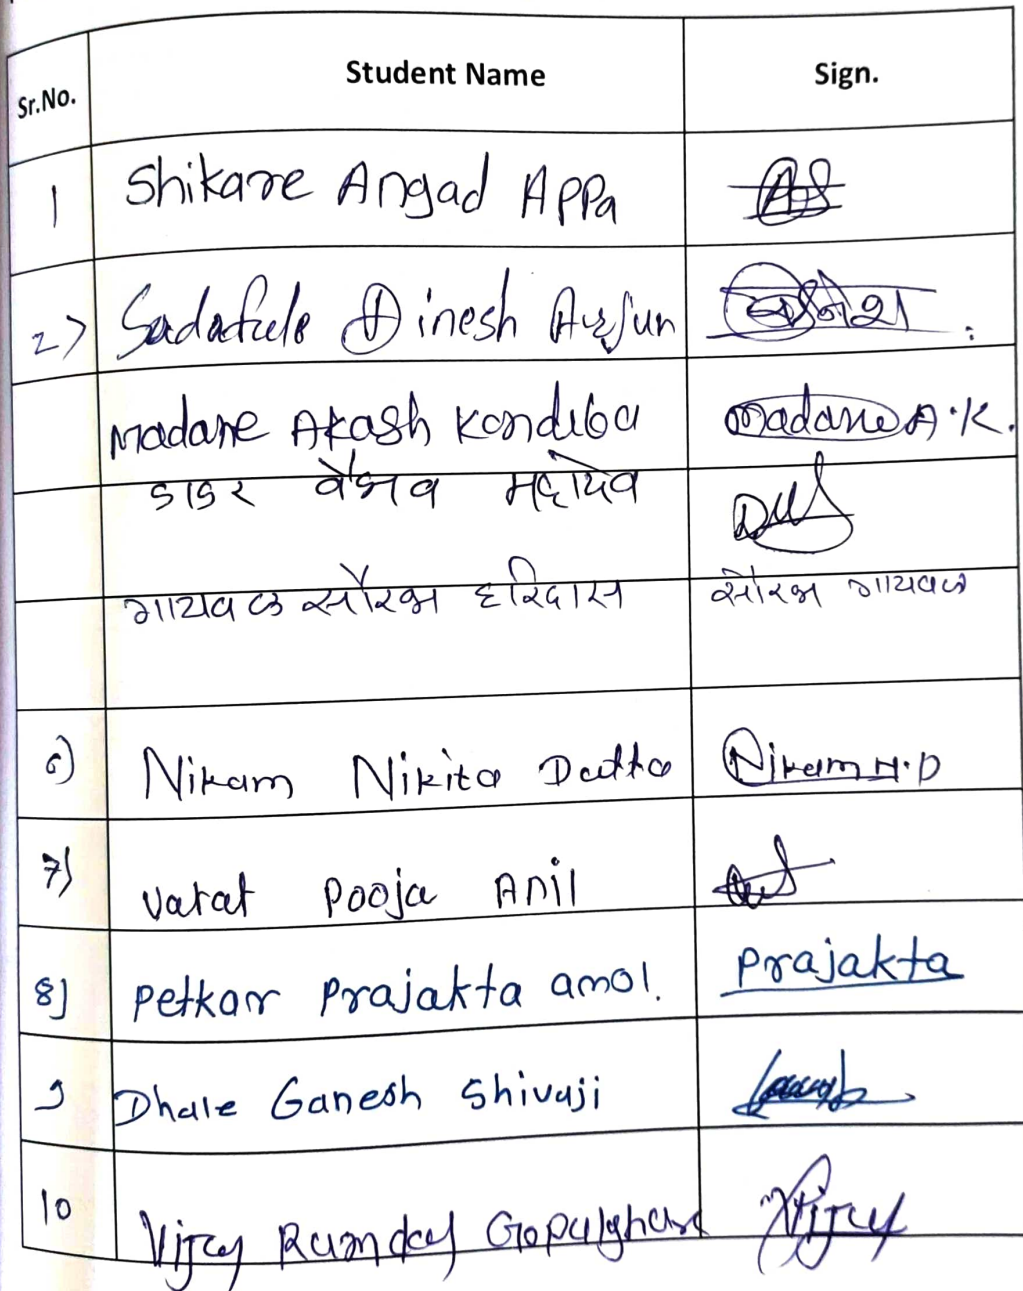 Sr.No. Student Name Sign.
1 Shikare Angad Appa
2) Sadafule Dinesh Arjun
Madane Akash Kondiba Madane A.K.
वैभव महादेव
गायवळ सौरभ हरिदास सौरभ गायवळ
6) Nikam Nikita Datta Nikam N.D
7) Varat Pooja Anil
8) Petkar Prajakta amol. Prajakta
9 Dhale Ganesh Shivaji
10 Vijay Ramdas Gopalghare Vijay